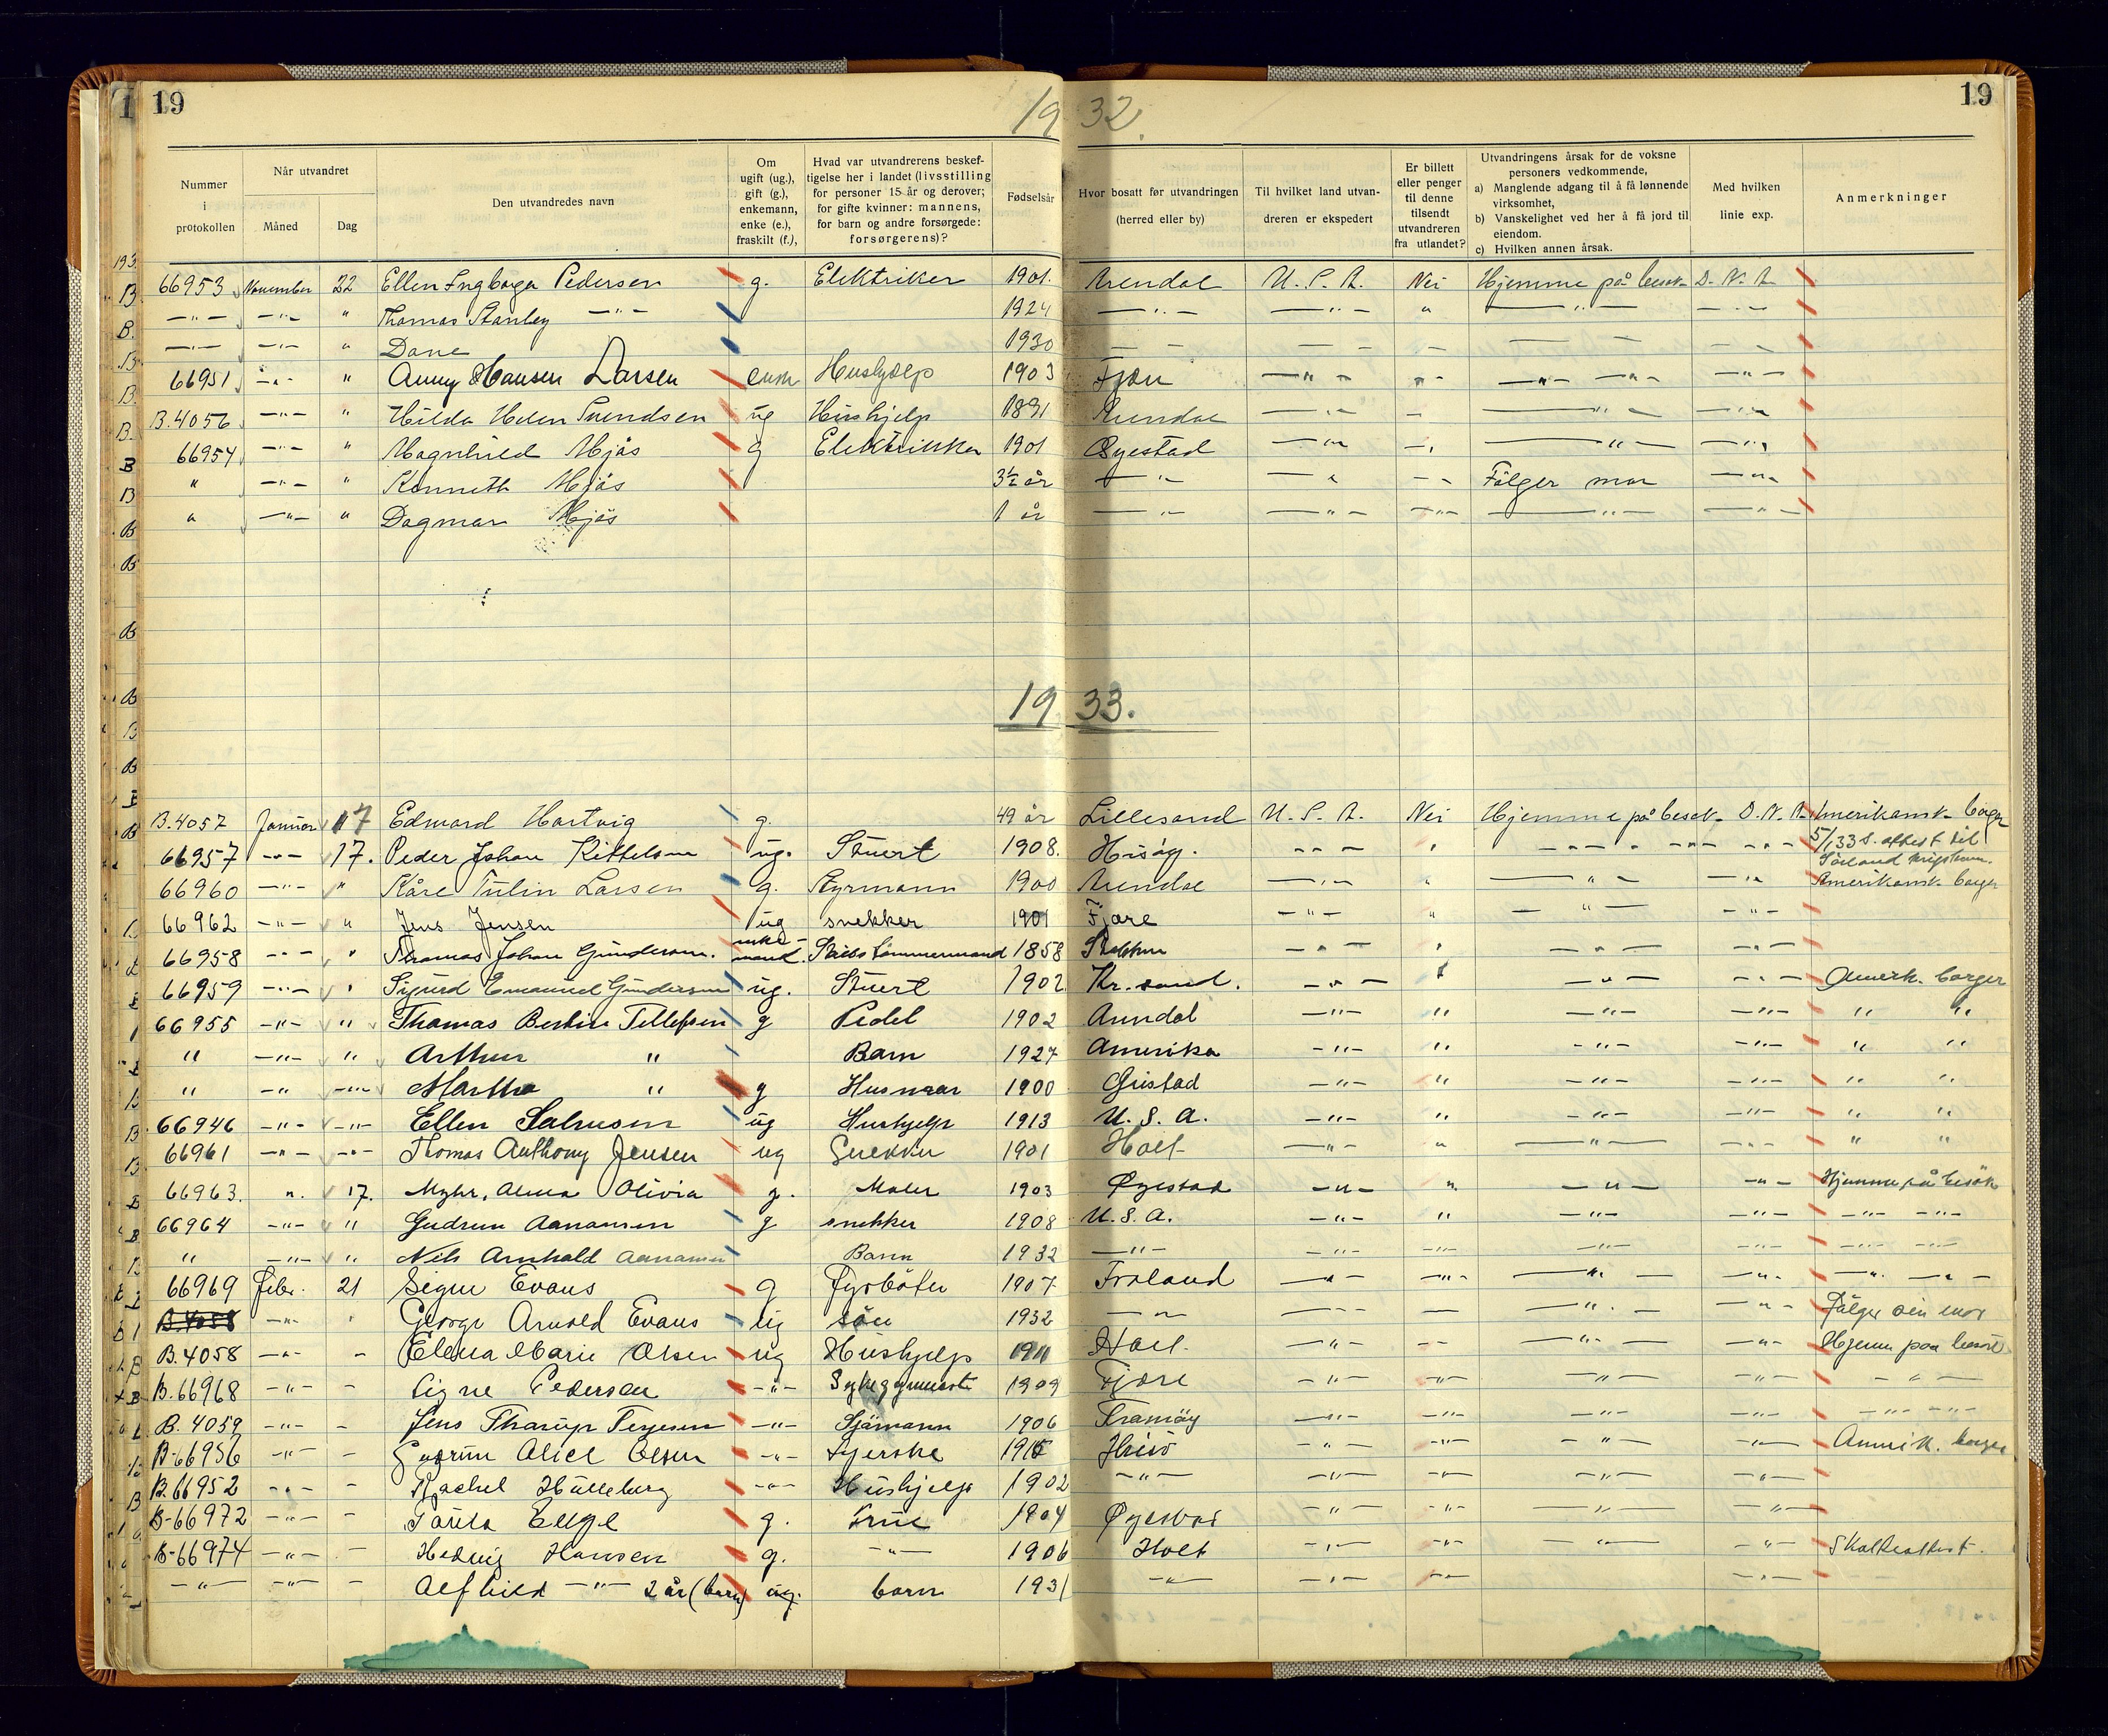 19
19
19 32.
Nummer i protokollen
Når utvandret
Måned
Dag
Den utvandredes navn
Om ugift (ug.), gift (g.), enkemann, enke (e.), fraskilt (f.),
Hvad var utvandrerens beskef-
tigelse her i landet (livsstilling
for personer 15 år og derover;
for gifte kvinner: mannens,
for barn og andre forsørgede:
forsørgerens)?
Fødselsår
Hvor bosatt før utvandringen
(herred eller by)
Til hvilket land utvan-
dreren er ekspedert
Er billett
eller penger
til denne
tilsendt
utvandreren
fra utlandet?
Utvandringens årsak for de voksne
personers vedkommende,
a) Manglende adgang til å få lønnende
virksomhet,
b) Vanskelighet ved her å få jord til
eiendom.
c) Hvilken annen årsak.
Med hvilken
linie exp.
Anmerkninger
66953 November 22 Ellen Ingborga Pedersen g. Elektriker 1901. Arendal U.S.A. Nei Hjemme på besøk D.N.A
—"— —"— " Thomas Stanley —"— 1924 —"— —"— " —"— —"—
—"— —"— " Dane 1930 — — — — — — — — —
66951 —"— " Anny Hansen Larsen Hushjælp 1903 Fjære —"— "- —"— —"— —"—
B.4056 —"— " Hilda Helen Svendsen ug Hushjelp 1891 Arendal —"— — —"— —"—
66954 —"— " Magnhild Mjås g Elektriker 1901 Øyestad —"— —"— —"— —"—
" —"— " Kenneth Mjås 3½ år —"— " — - Følger mor —"—
" —"— " Dagmar Mjås 1 år —"— —"— —"— —"— —"—
19 33.
B.4057 Januar 17 Edward Hartvig g. 49 år Lillesand U.S.A. Nei Hjemme på besøk D.N.A. Amerikansk borger
66957 —"— 17. Peder Johan Kittelsen ug. Stuert 1908. Hisøy. —"— " —"— —"— —"— 5/1 33 s. attest til
66960 —"— " Kåre Tulin Larsen g. Styrmann 1900 Arendal —"— " —"— —"— Amerikansk borger
66962 —"— " Jens Jensen ug snekker 1901 Fjære —"— " —"— —"—
66958 —"— " Thomas Johan Gundersen. enke-mand. Skibstømmermand 1858 Stokken —"— " —"— —"—
66959 —"— " Sigurd Emanuel Gundersen ug. Stuert 1902 Kr.sand. —"— " —"— —"— Amerk. borger
66955 —"— " Thomas Bertin Tellefsen g Pedel 1902 Arendal —"— " —"— —"— " "
" —"— " Arthur " Barn 1927 Amerika —"— " —"— —"— " "
" —"— —"— Martha " g Husmor 1900 —"— " —"— —"— " "
66946 —"— —"— Ellen Salvesen ug Hushjelp 1913 U.S.A. —"— " —"— —"— " "
66961 —"— —"— Thomas Anthony Jensen ug Snekker 1901 Holt —"— " —"— —"— " "
66963. ". 17. Myhr, Alma Olivia g. Maler 1903 Øyestad —"— ". —"— —"— Hjemme på besøk
66964 —"— " Gudrun Aanansen g snekker 1908 U.S.A. —"— " —"— —"— —"— —"—
" —"— " Nils Arnhold Aanansen Barn 1932 —"— —"— —"— —"— —"— —"— —"—
66969 Febr. 21 Evans g Fyrbøter 1907 Froland —"— —"— —"— —"— —"— —"—
B.4058 —"— " George Arnold Evans ug søn 1932 —"— —"— — —"— —"— Følger sin mor
B.4058 —"— " Marie Olsen ug Hushjelp 1911 Holt. —"— —"— —"— —"— Hjemme paa besøk
B.66968 —"— - Signe Pedersen —"— 1909 Fjære —"— —"— —"— —"— —"—
B.4059 —"— - Jens Tharup Terjesen —"— Sjømann 1906 Tromøy —"— —"— —"— —"— —"— —"—
B-66956 —"— - Alice Olsen —"— Syerske 1915 Hisø —"— —"— —"— —"— Amerik. borger
B.66952 —"— - Rachel —"— Hushjelp 1902 —"— —"— —"— —"— —"—
B-66972 —"— - g. Frue 1904 Øyestad —"— —"— —"— —"—
B-66974 —"— - Hedvig Hansen g. —"— 1906 Holt —"— —"— —"— —"— Skatteattest.
—"— —"— - Alfhild —"— 2 år (barn) ug. barn 1931 —"— —"— —"— —"—